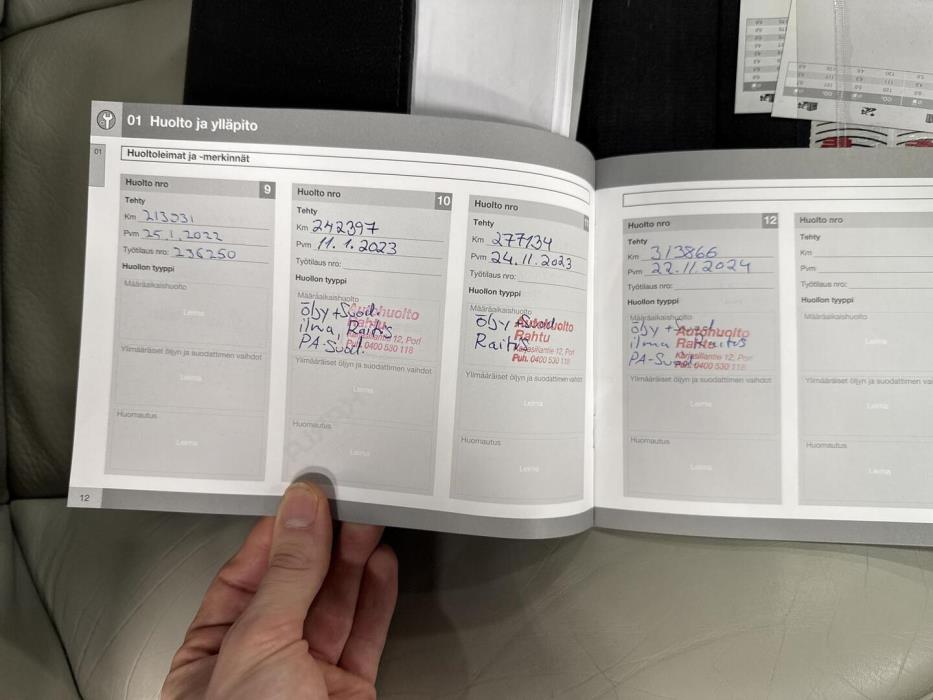 01 Huolto ja ylläpito
01
Huoltoleimat ja -merkinnät
Huolto nro 9
Tehty
Km 213931
Pvm 25.1.2022
Työtilaus nro: 236250
Huollon tyyppi
Määräaikaishuolto
Leima
Ylimääräiset öljyn ja suodattimen vaihdot
Leima
Huomautus
Leima
12
Huolto nro 10
Tehty
Km 242397
Pvm 11.1.2023
Työtilaus nro:
Huollon tyyppi
Määräaikaishuolto
öljy + Suod.
ilma, Raitis
PA-Suod.
Autohuolto
Rahtu
Karjasillantie 12, Pori
Puh. 0400 530 118
Ylimääräiset öljyn ja suodattimen vaihdot
Leima
Huomautus
Leima
Huolto nro 11
Tehty
Km 277134
Pvm 24.11.2023
Työtilaus nro:
Huollon tyyppi
Määräaikaishuolto
öljy + Suod.
Raitis
Autohuolto
Rahtu
Karjasillantie 12, Pori
Puh. 0400 530 118
Ylimääräiset öljyn ja suodattimen vaihdot
Leima
Huomautus
Leima
Huolto nro 12
Tehty
Km 313866
Pvm 22.11.2024
Työtilaus nro:
Huollon tyyppi
Määräaikaishuolto
öljy + Suod.
ilma Raitis
PA-Suod.
Autohuolto
Rahtu
Karjasillantie 12, Pori
Puh. 0400 530 118
Ylimääräiset öljyn ja suodattimen vaihdot
Leima
Huomautus
Leima
Huolto nro
Tehty
Km
Pvm
Työtilaus nro:
Huollon tyyppi
Määräaikaishuolto
Leima
Ylimääräiset öljyn ja suodattimen
Leima
Huomautus
Leima